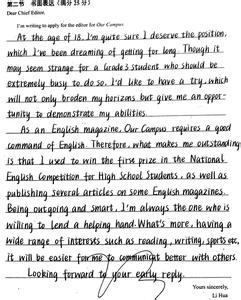 第二节 书面表达（满分 25 分）
Dear Chief Editor,
I'm writing to apply for the editor for Our Campus.
At the age of 18, I'm quite sure I deserve the position,
which I've been dreaming of gening for long. Though it
may seem strange for a Grade 3 student who should be
extremely busy to do so, I'd like to have a try, which
will not only broden my horizons but give me an oppor-
tunity to demonstrate my abilities.
As an English magazine, Our Campus requires a good
command of English. Therefore, what makes me outstanding
is that I used to win the first prize in the National
English Competition for High School Students, as well as
publishing several articles on some English magazines.
Being outgoing and smart, I'm always the one who is
willing to lend a helping hand. What's more, having a
wide range of interests such as reading, writing, sports etc,
it will be easier for me to communicat better with others.
Looking forward to your early reply.
Yours sincerely,
Li Hua